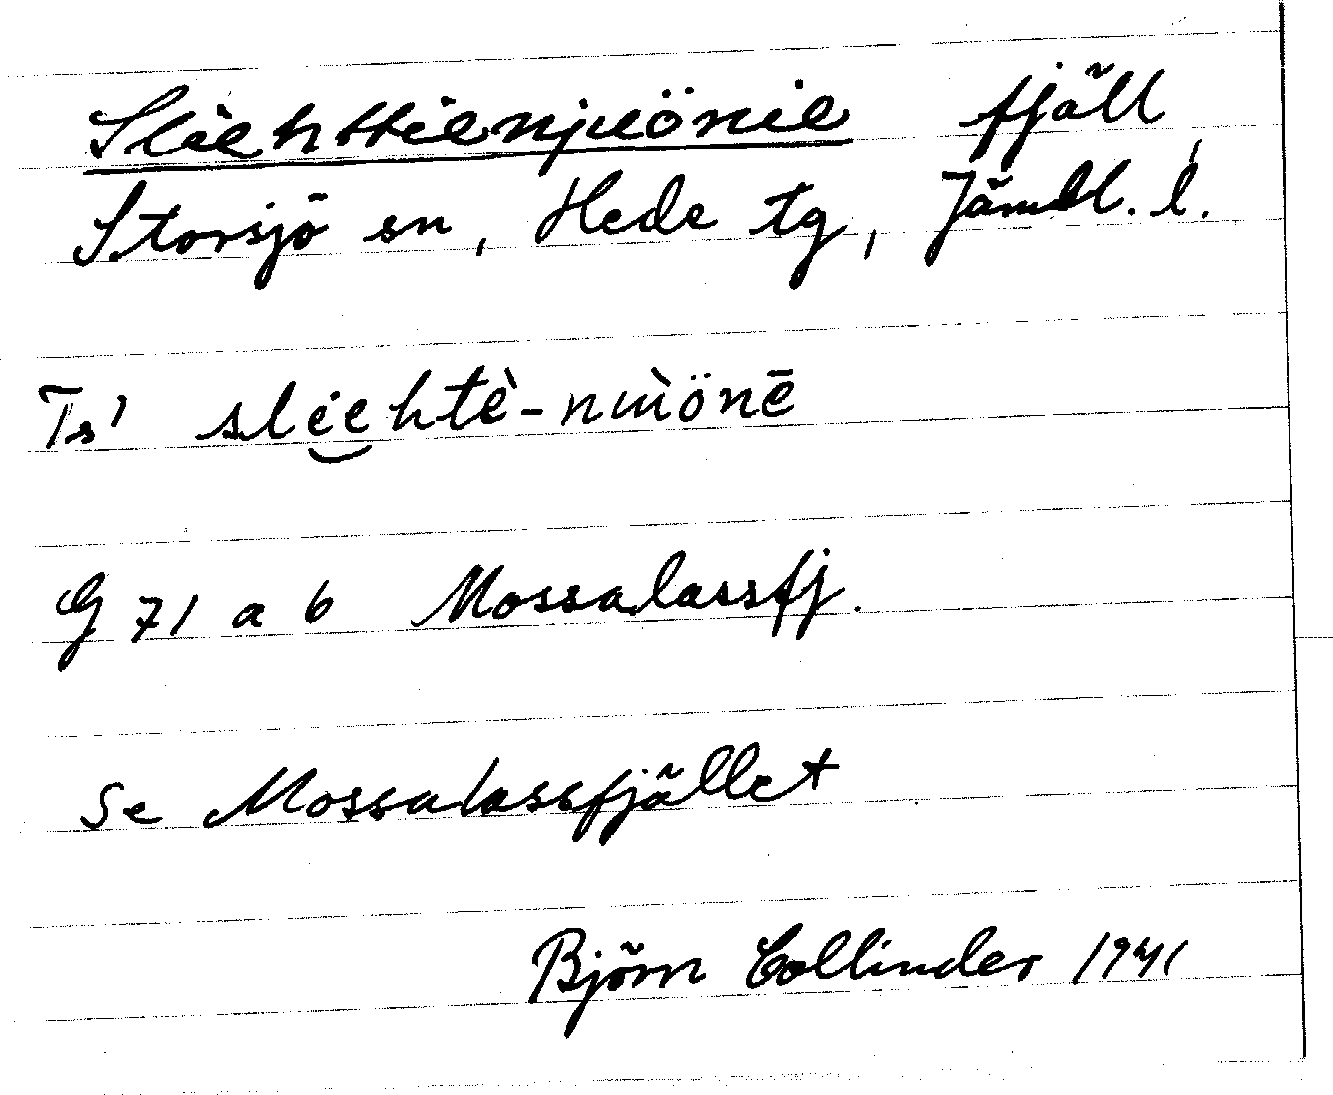 Sliehttienjuönie fjäll,
Storsjö sn, Hede tg, Jämtl. l.
Ts' sliehtè-nuìönē
G 71 a b Mossalassfj.
Se Mossalassfjället
Björn Collinder 1941